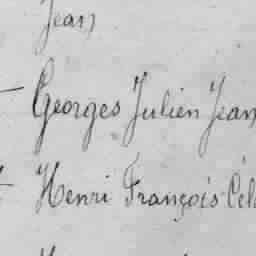 Jean
Georges Julien Jean
Henri François